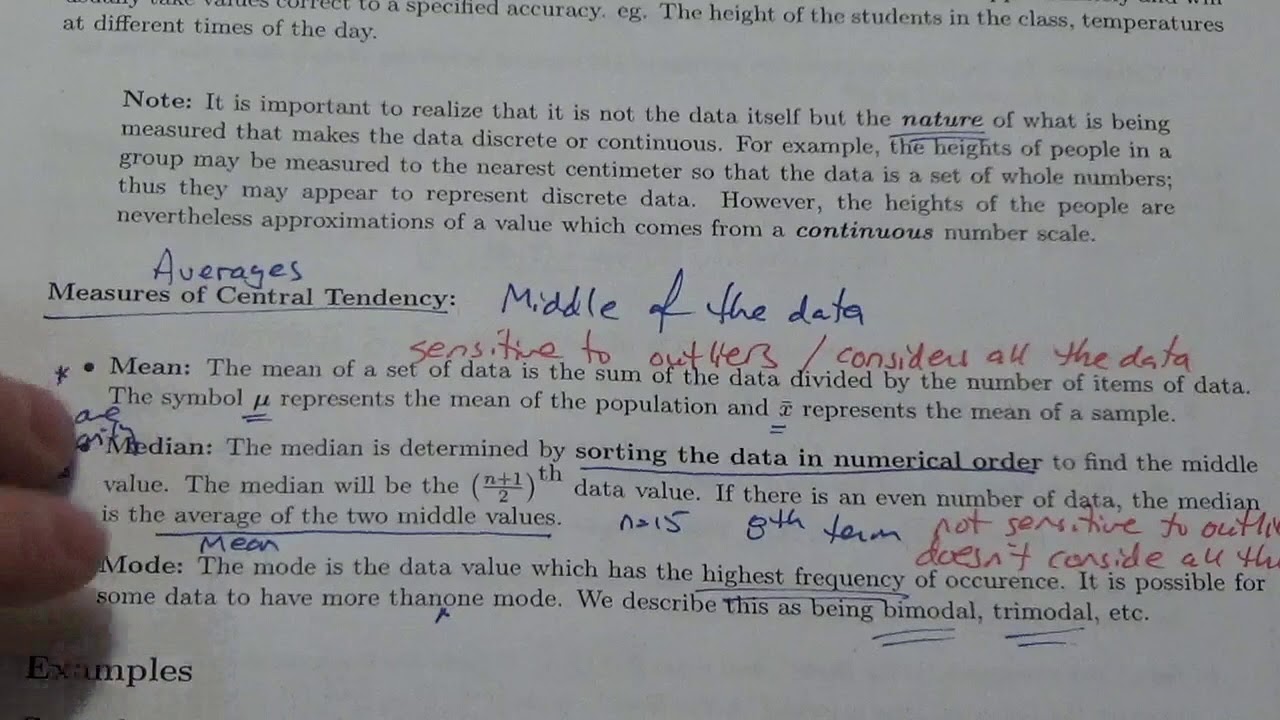 usually take values correct to a specified accuracy. eg. The height of the students in the class, temperatures
at different times of the day.
Note: It is important to realize that it is not the data itself but the nature of what is being
measured that makes the data discrete or continuous. For example, the heights of people in a
group may be measured to the nearest centimeter so that the data is a set of whole numbers;
thus they may appear to represent discrete data. However, the heights of the people are
nevertheless approximations of a value which comes from a continuous number scale.
Averages
Measures of Central Tendency: Middle of the data
sensitive to outliers / considers all the data
* • Mean: The mean of a set of data is the sum of the data divided by the number of items of data.
The symbol μ represents the mean of the population and x̄ represents the mean of a sample.
are
Median: The median is determined by sorting the data in numerical order to find the middle
value. The median will be the ((n+1)/2)^th data value. If there is an even number of data, the median
is the average of the two middle values. n=15 8th term not sensitive to outli
Mean doesn't conside all th
Mode: The mode is the data value which has the highest frequency of occurence. It is possible for
some data to have more thanone mode. We describe this as being bimodal, trimodal, etc.
Examples